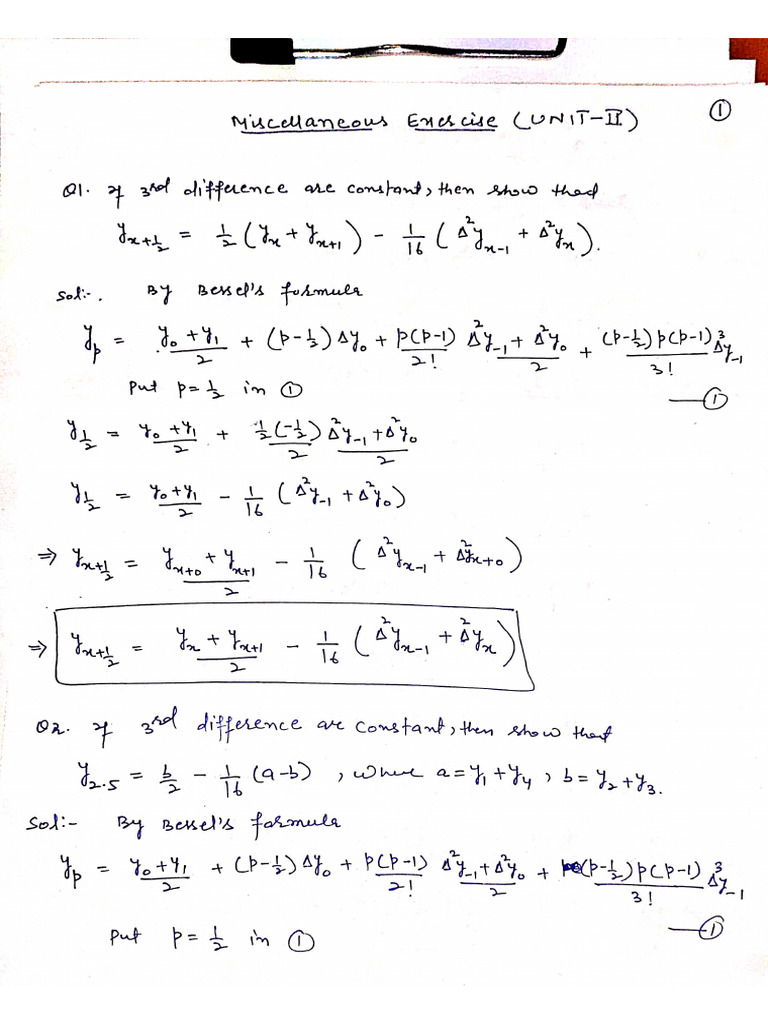 Miscellaneous Exercise (UNIT-II) ①
Q1. If 3rd difference are constant, then show that
y_{x+1/2} = 1/2 (y_x + y_{x+1}) - 1/16 (Δ²y_{x-1} + Δ²y_x).
Sol:-. By Bessel's formula
y_p = (y_0 + y_1)/2 + (p-1/2) Δy_0 + p(p-1)/2! (Δ²y_{-1} + Δ²y_0)/2 + (p-1/2)p(p-1)/3! Δ³y_{-1}
Put p = 1/2 in ① —①
y_{1/2} = (y_0 + y_1)/2 + 1/2(-1/2)/2 (Δ²y_{-1} + Δ²y_0)/2
y_{1/2} = (y_0 + y_1)/2 - 1/16 (Δ²y_{-1} + Δ²y_0)
⇒ y_{x+1/2} = (y_{x+0} + y_{x+1})/2 - 1/16 (Δ²y_{x-1} + Δ²y_{x+0})
⇒ y_{x+1/2} = (y_x + y_{x+1})/2 - 1/16 (Δ²y_{x-1} + Δ²y_x)
Q2. If 3rd difference are constant, then show that
y_{2.5} = b/2 - 1/16 (a-b), where a = y_1 + y_4, b = y_2 + y_3.
Sol:- By Bessel's formula
y_p = (y_0 + y_1)/2 + (p-1/2) Δy_0 + p(p-1)/2! (Δ²y_{-1} + Δ²y_0)/2 + (p-1/2)p(p-1)/3! Δ³y_{-1}
Put p = 1/2 in ① —①